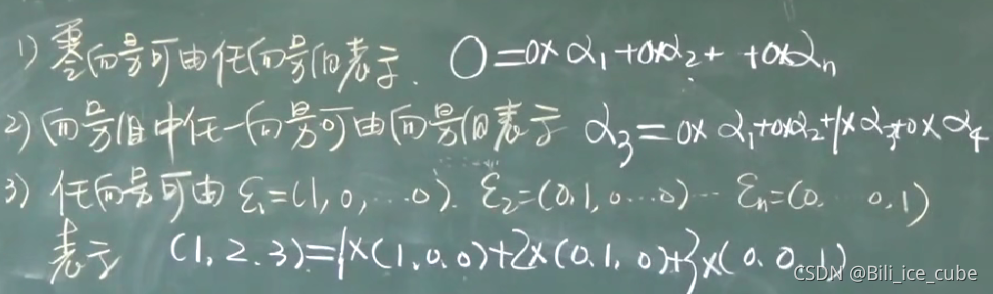 1) 零向量可由任向量组表示. 0=0×α₁+0×α₂+ +0×αₙ
2) 向量组中任一向量可由向量组表示 α₃=0×α₁+0×α₂+1×α₃+0×α₄
3) 任向量可由 ε₁=(1,0,…0). ε₂=(0,1,0…0)… εₙ=(0. 0,1)
表示 (1.2.3)=1×(1.0.0)+2×(0.1,0)+3×(0.0.1)
CSDN @Bili_ice_cube